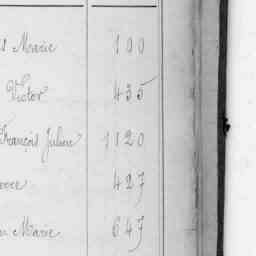 Marie 100
Victor 435
François Julien 1120
427
Marie 647